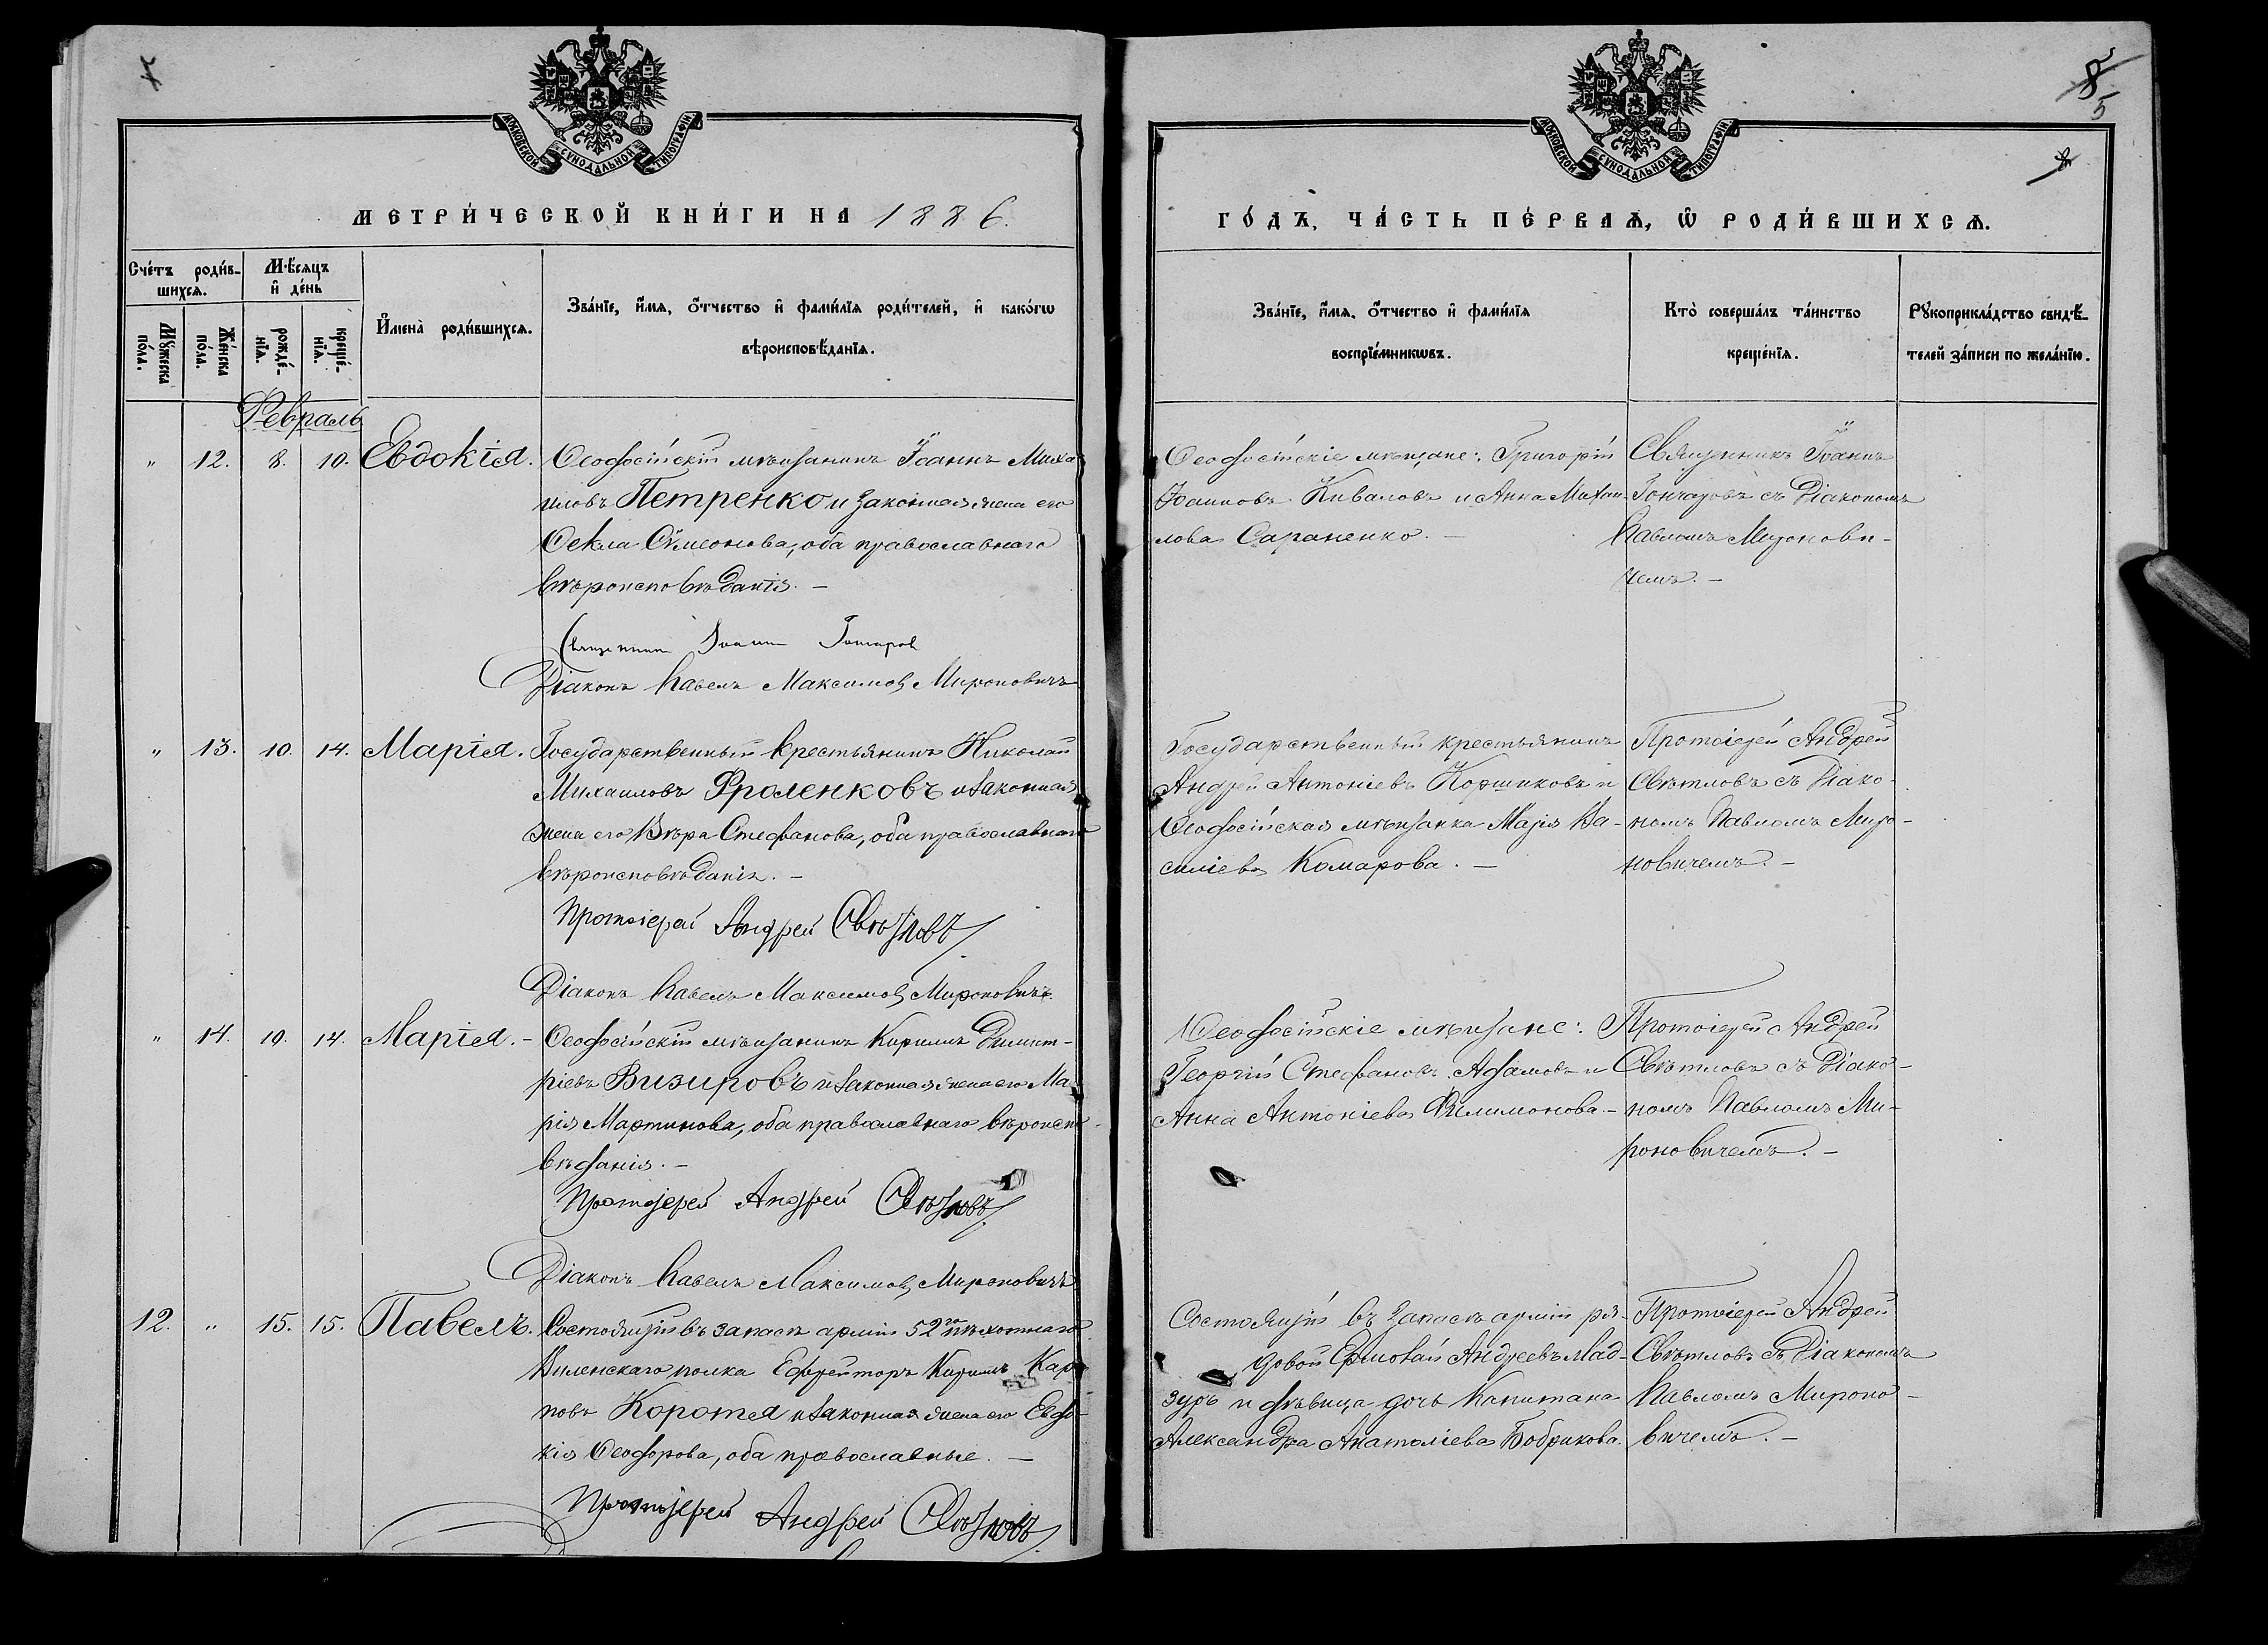 7
МОСКОВСКОЙ СѴНОДАЛЬНОЙ ТИПОГРАФІИ
МЕТРИ́ЧЕСКОЙ КНИ́ГИ НА 1886.
Сче́тъ роди́в-
шихсѧ.
Мѣ́сяцъ
и҆ де́нь
Мꙋ́жеска
по́ла.
Же́нска
по́ла.
рожде́-
нїѧ.
креще́-
нїѧ.
И҆мена̀ роди́вшихсѧ.
Зва́нїе, и҆́мѧ, ѻ҆́тчество и҆ фами́лїѧ роди́телей, и҆ како́гѡ
вѣроисповѣ́данїѧ.
Февраль
" 12. 8. 10. Евдокія. Ѳеодосійскій мѣщанинъ Іоаннъ Миха
иловъ Петренко и законная жена его
Ѳекла Сѵмеонова, оба православнаго
вѣроисповѣданія. –
Священникъ Іоаннъ Гончаровъ
Діаконъ Павелъ Максимовъ Мироновичъ
" 13. 10. 14. Марія. Государственный крестьянинъ Николай
Михаиловъ Фроленковъ и законная
жена его Вѣра Стефанова, оба православнаго
вѣроисповѣданія. –
Протоіерей Андрей Свѣтловъ
Діаконъ Павелъ Максимовъ Мироновичъ.
" 14. 10. 14. Марія. – Ѳеодосійскій мѣщанинъ Кирилъ Димит-
ріевъ Визировъ и законная жена его Ма-
рія Мартинова, оба православнаго вѣроиспо-
вѣданія. –
Протоіерей Андрей Свѣтловъ
Діаконъ Павелъ Максимовъ Мироновичъ
12. " 15. 15. Павелъ. Состоящій въ запасѣ арміи 52го пѣхотнаго
Виленскаго полка Ефрейторъ Кирилъ Кар
повъ Коротея и законная жена его Евдо-
кія Ѳеодорова, оба православные. –
Протоіерей Андрей Свѣтловъ
8
5
МОСКОВСКОЙ СѴНОДАЛЬНОЙ ТИПОГРАФІИ
ГО́ДЪ, ЧА́СТЬ ПЕ́РВАѦ, Ѡ҆ РОДИ́ВШИХСѦ.
Зва́нїе, и҆́мѧ, ѻ҆́тчество и҆ фами́лїѧ
воспрїе́мникѡвъ.
Кто̀ соверша́лъ та́инство
креще́нїѧ.
Рꙋкоприкла́дство свидѣ́-
телей за́писи по жела́нїю.
Ѳеодосійскіе мѣщане: Григорій
Іоанновъ Киваловъ и Анна Михаи-
лова Сараненко. –
Священникъ Іоаннъ
Гончаровъ съ Діакономъ
Павломъ Миронови-
чемъ. –
Государственный крестьянинъ
Андрей Антоніевъ Коршиковъ и
Ѳеодосійская мѣщанка Марія Ва-
силіева Комарова. –
Протоіерей Андрей
Свѣтловъ съ Діако-
номъ Павломъ Миро-
новичемъ. –
Ѳеодосійскіе мѣщане:
Георгій Стефановъ Адамовъ и
Анна Антоніева Филимонова. –
Протоіерей Андрей
Свѣтловъ съ Діако-
номъ Павломъ Ми-
роновичемъ. –
Состоящій въ запасѣ арміи ря-
довой Андреевъ Мад-
зуръ и дѣвица дочь Капитана
Александра Анатоліева Бобрикова.
Протоіерей Андрей
Свѣтловъ съ Діакономъ
Павломъ Мироно-
вичемъ. –